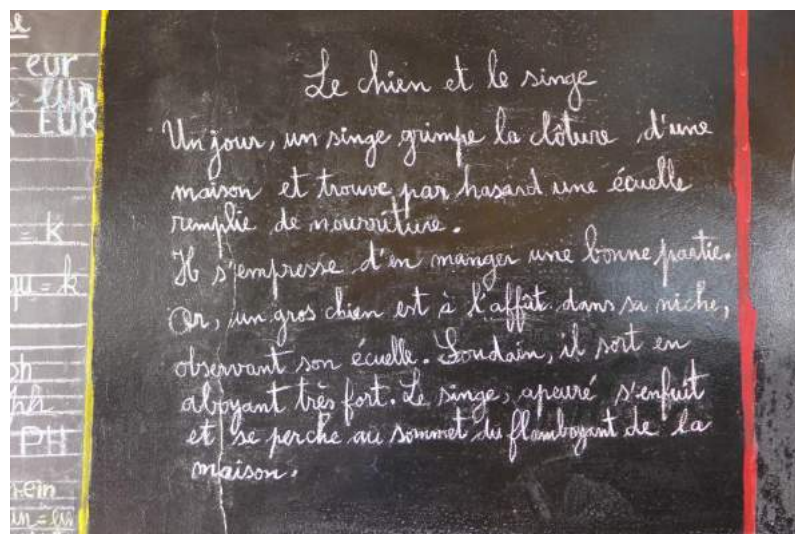 eur
EUR
= k
qu = k
ph
PH
Le chien et le singe
Un jour, un singe grimpe la clôture d'une
maison et trouve par hasard une écuelle
remplie de nourriture.
Il s'empresse d'en manger une bonne partie.
Or, un gros chien est à l'affût dans sa niche,
observant son écuelle. Soudain, il sort en
aboyant très fort. Le singe, apeuré s'enfuit
et se perche au sommet du flamboyant de la
maison.